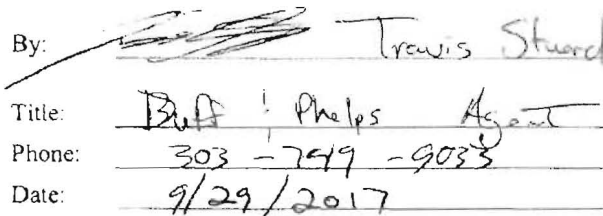 By: Travis
Title: Duff & Phelps Agent
Phone: 303-749-9033
Date: 9/29/2017